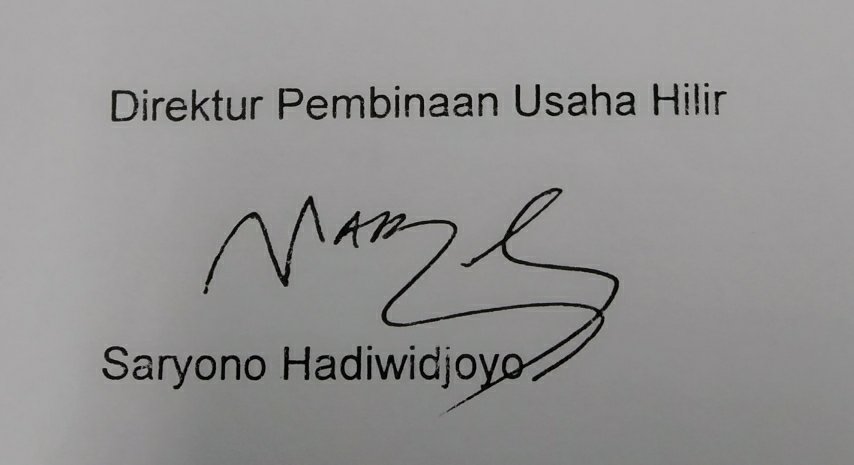 Direktur Pembinaan Usaha Hilir
Saryono Hadiwidjoyo